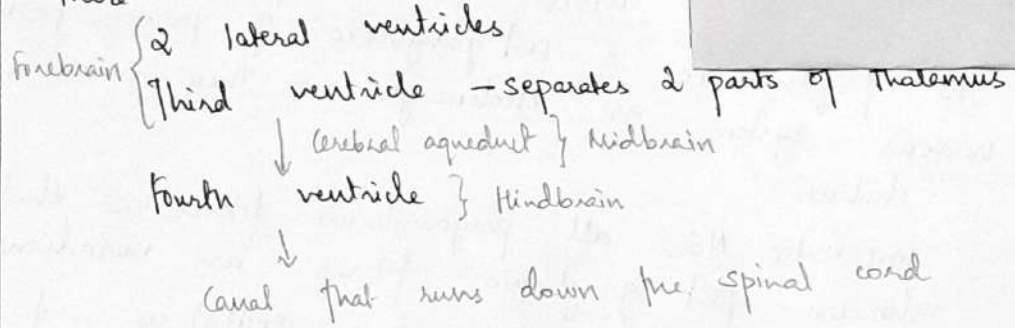 2 lateral ventricles
Forebrain
Third ventricle - separates 2 parts of Thalamus
↓ Cerebral aqueduct } Midbrain
Fourth ventricle } Hindbrain
↓
Canal that runs down the spinal cord